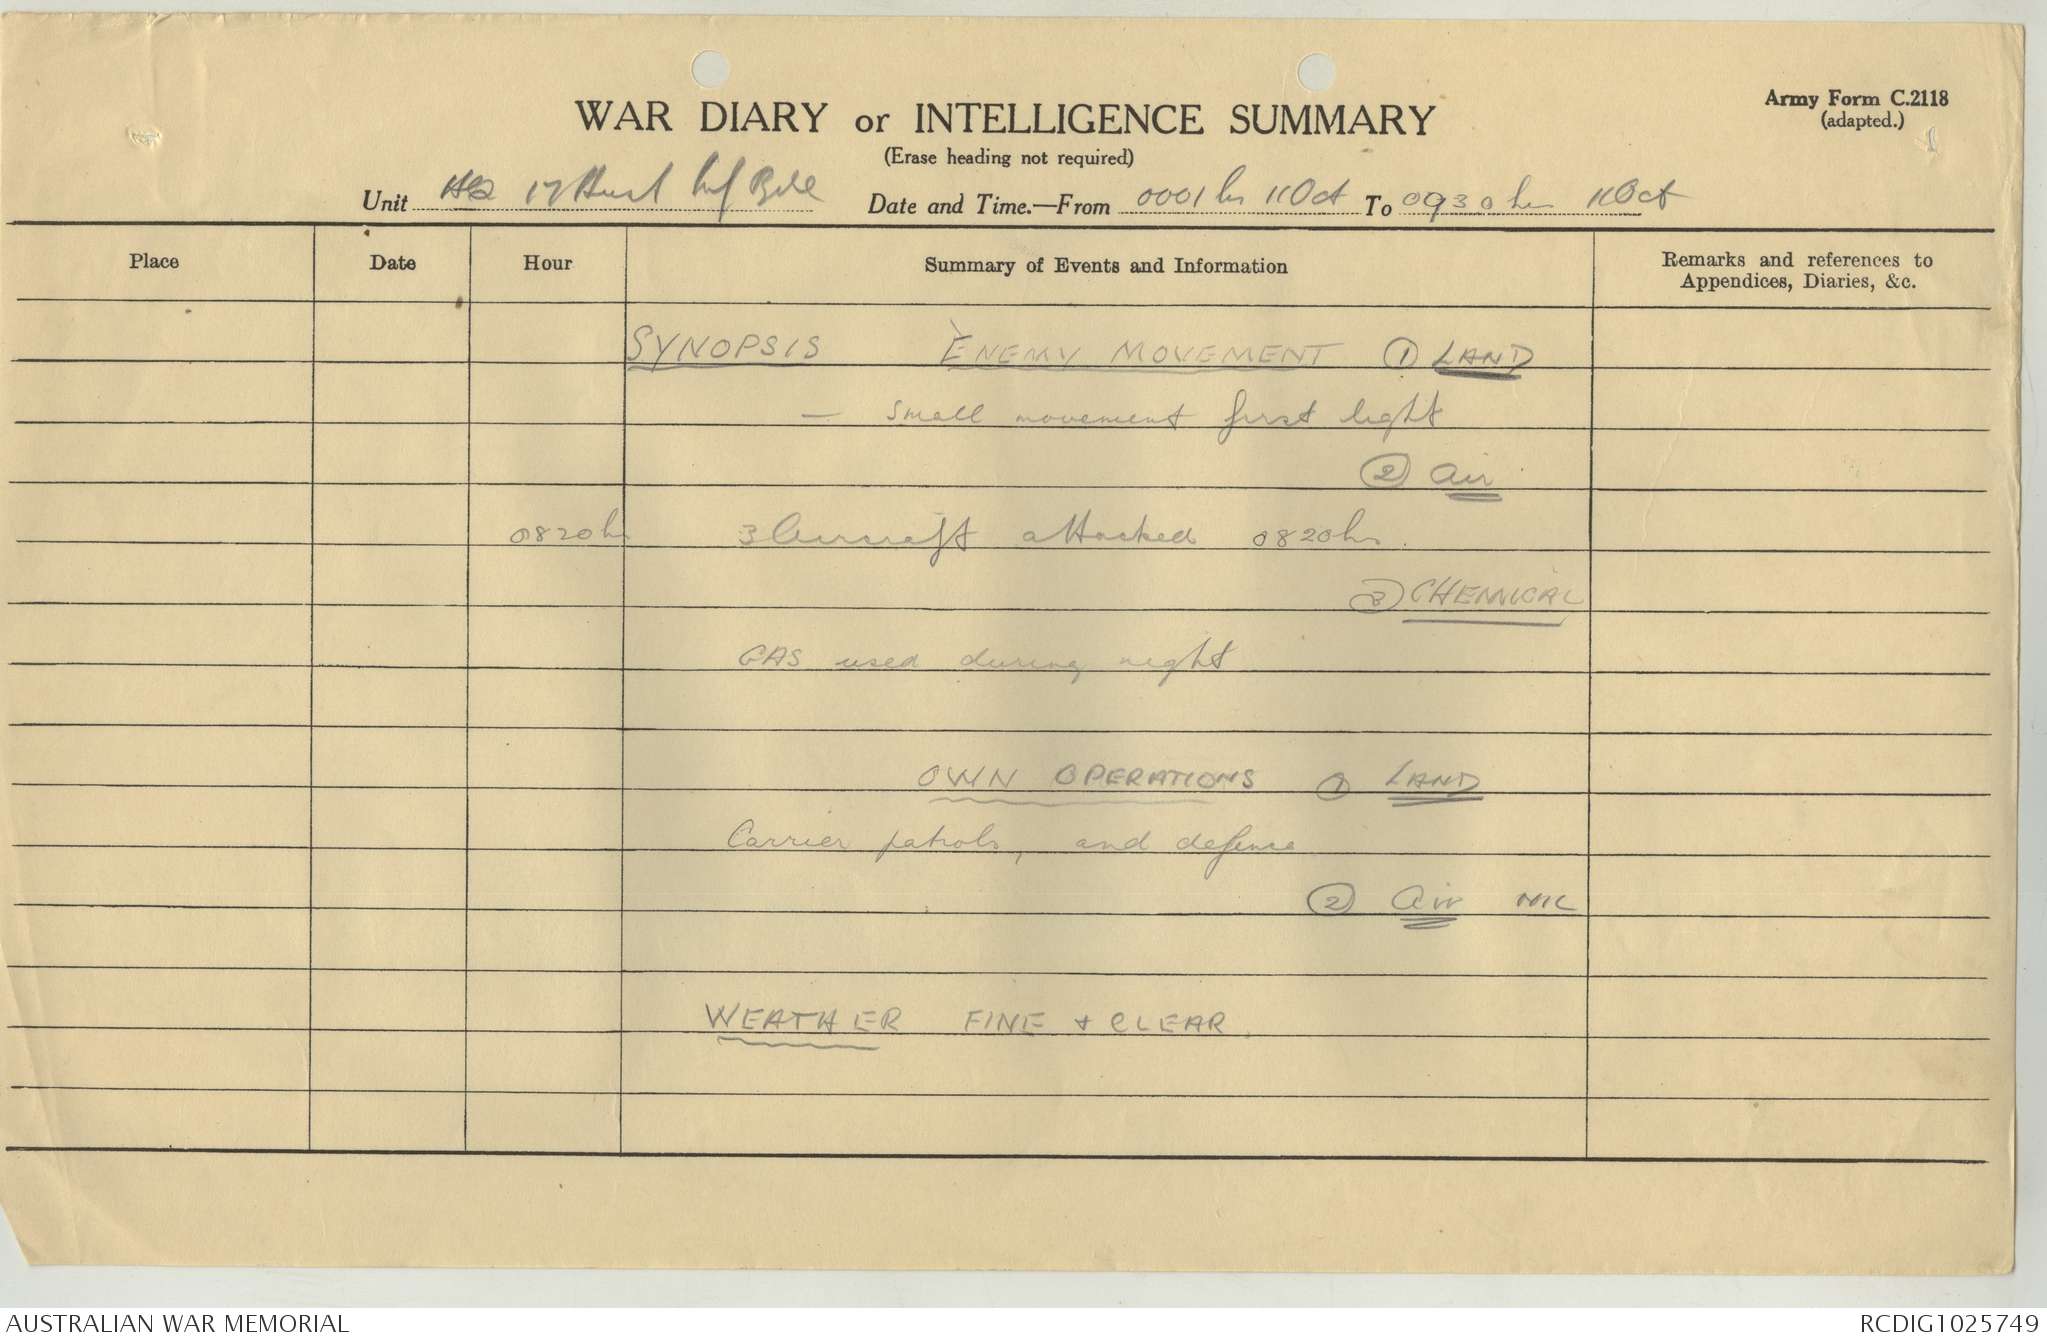 Army Form C.2118
(adapted.)
WAR DIARY or INTELLIGENCE SUMMARY
(Erase heading not required)
Unit HQ 17 Aust Inf Bde Date and Time.—From 0001 hrs 11 Oct To 0930 hrs 11 Oct
Place Date Hour Summary of Events and Information Remarks and references to Appendices, Diaries, &c.
SYNOPSIS ENEMY MOVEMENT (1) LAND
— small movement first light
(2) Air
0820 hrs 3 Aircraft attacked 0820 hrs.
(3) CHEMICAL
GAS used during night
OWN OPERATIONS (1) LAND
Carrier patrols, and defence
(2) Air NIL
WEATHER FINE + CLEAR.
AUSTRALIAN WAR MEMORIAL RCDIG1025749